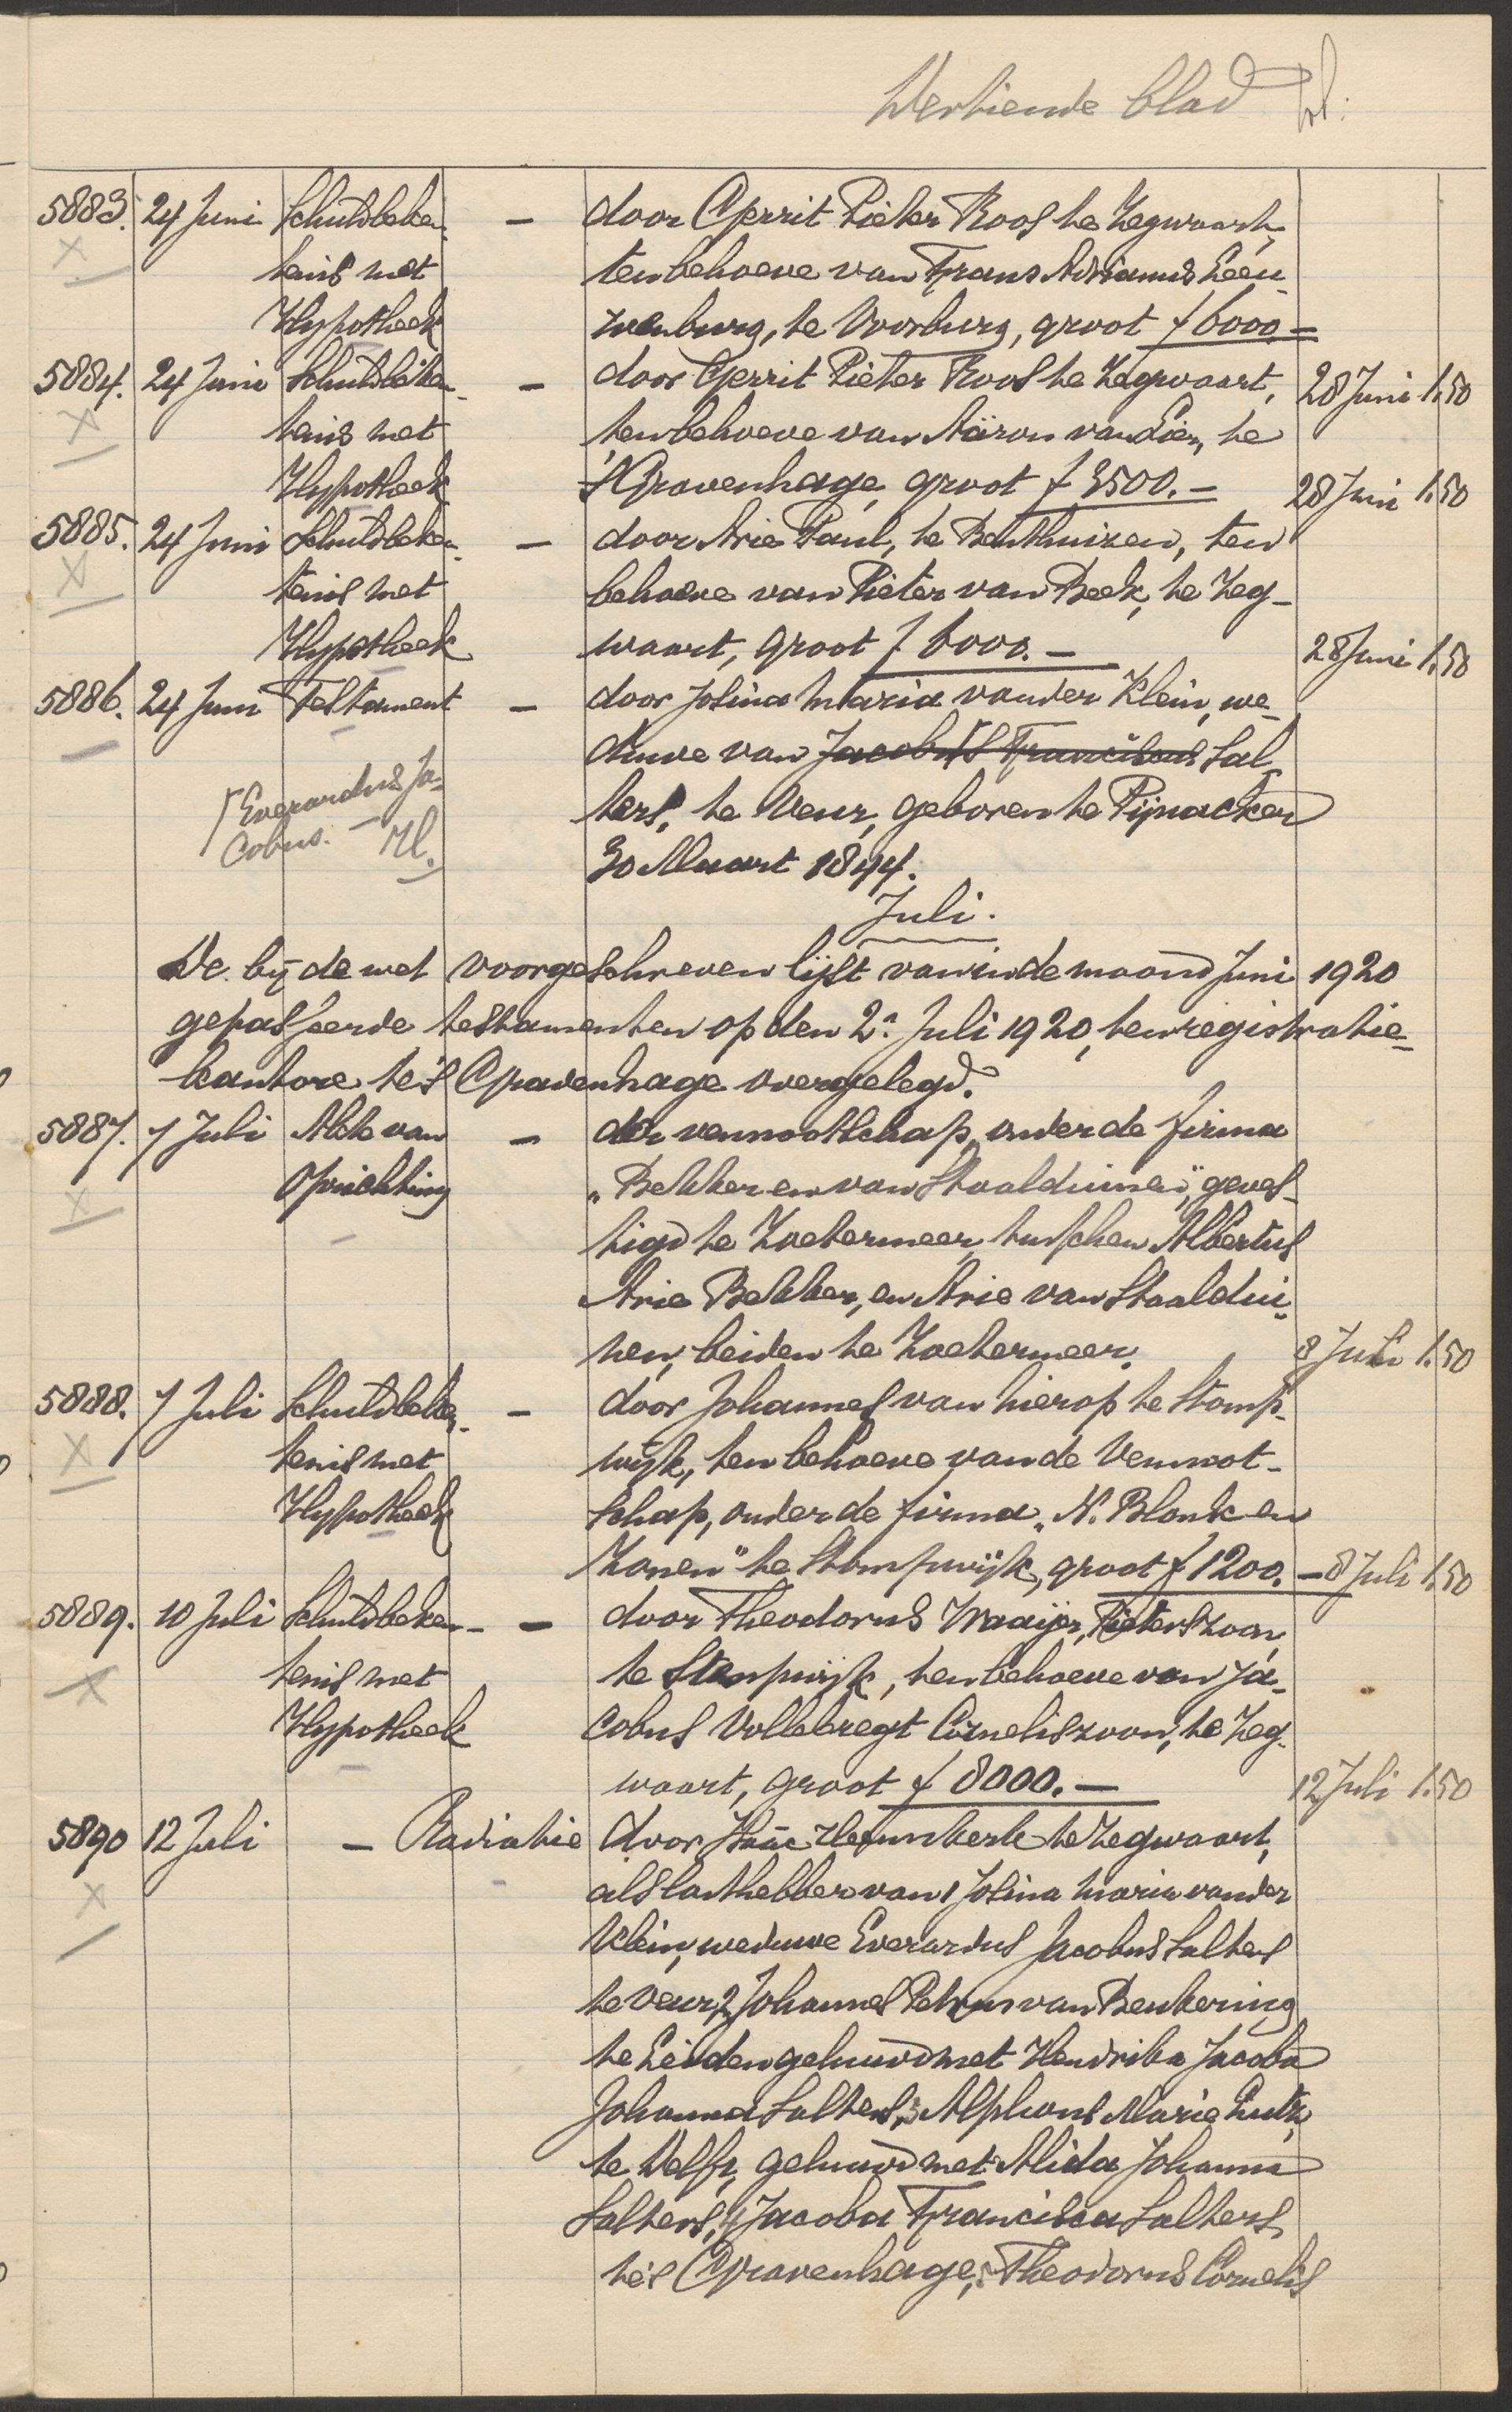 Dertiende blad
5883. 24 Juni Schuldbeken- — door Gerrit Pieter Roos te Zegwaart,
tenis met ten behoeve van Frans Adrianus Leeu-
Hypotheek wenburg, te Voorburg, groot f 6000.—
5884. 24 Juni Schuldbeken- — door Gerrit Pieter Roos te Zegwaart, 28 Juni 1.50
tenis met ten behoeve van Aäron van Lier, te
Hypotheek 's Gravenhage, groot f 3500.— 28 Juni 1.50
5885. 24 Juni Schuldbeken- — door Arie Paul, te Benthuizen, ten
tenis met behoeve van Pieter van Beek, te Zeg-
Hypotheek waart, groot f 6000.— 28 Juni 1.50
5886. 24 Juni Testament — door Josina Maria van der Klein, we-
duwe van Jacobus Franciscus Sal-
Γ Everardus Ja- ters, te Veur, geboren te Pijnacker
cobus. — 30 Maart 1844.
Juli.
De bij de wet voorgeschreven lijst van in de maand Juni 1920
gepasseerde testamenten op den 2n Juli 1920, ten registratie-
kantore te 's Gravenhage overgelegd.
5887. 7 Juli Akte van — der vennootschap, onder de firma
Oprichting „Bekker en van Staalduinen", geves-
tigd te Zoetermeer, tusschen Albertus
Arie Bekker, en Arie van Staaldui-
nen, beiden te Zoetermeer. 8 Juli 1.50
5888. 7 Juli Schuldbeken- — door Johannes van Nierop te Stomp-
tenis met wijk, ten behoeve van de Vennoot-
Hypotheek schap, onder de firma „N. Blonk en
Zonen" te Stompwijk, groot f 1200.— 8 Juli 1.50
5889. 10 Juli Schuldbeken- — door Theodorus Waaijer, Pieterszoon,
tenis met te Stompwijk, ten behoeve van Ja-
Hypotheek cobus Vollebregt Corneliszoon, te Zeg-
waart, groot f 8000.— 12 Juli 1.50
5890 12 Juli — Radiatie door Isaäc te Zegwaart,
als lasthebber van 1 Josina Maria van der
Klein, weduwe Everardus Jacobus Salters
te Veur, 2 Johannes Petrus van Benkering
te Leiden gehuwd met Hendrika Jacoba
Johanna Salters, 3 Alphons Marie
te Delft, gehuwd met Alida Johanna
Salters, 4 Jacoba Francisca Salters,
te 's Gravenhage, 5 Theodorus Cornelis